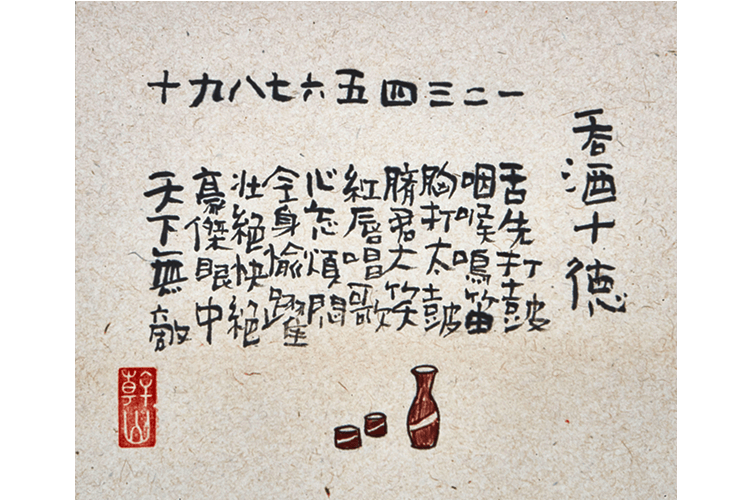 呑酒十徳
一 舌先打鼓
二 咽喉鳴笛
三 胸打太鼓
四 臍君大笑
五 紅唇唱歌
六 心忘煩悶
七 全身愉躍
八 壮絶快絶
九 豪傑眼中
十 天下無敵
幹山